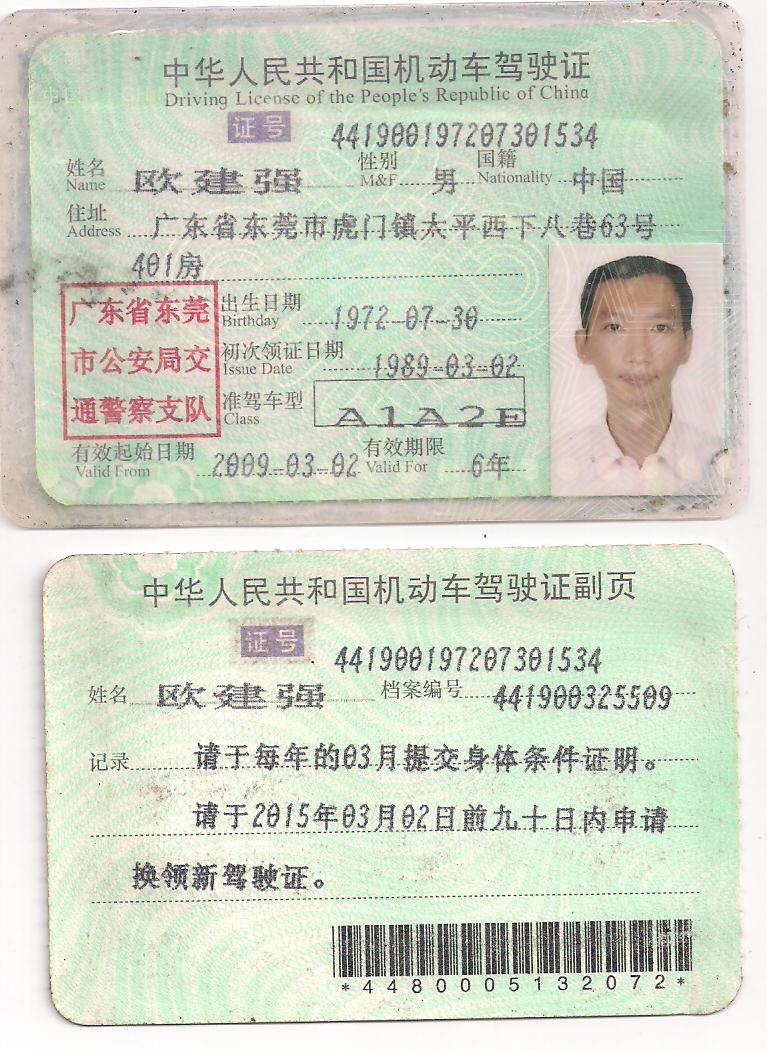 中华人民共和国机动车驾驶证
Driving License of the People's Republic of China
证号 441900197207301534
姓名 Name 欧建强 性别 M&F 男 国籍 Nationality 中国
住址 Address 广东省东莞市虎门镇太平西下八巷63号
401房
广东省东莞
市公安局交
通警察支队
出生日期 Birthday 1972-07-30
初次领证日期 Issue Date 1989-03-02
准驾车型 Class A1A2E
有效起始日期 Valid From 2009-03-02 有效期限 Valid For 6年
中华人民共和国机动车驾驶证副页
证号 441900197207301534
姓名 欧建强 档案编号 441900325509
记录 请于每年的03月提交身体条件证明。
请于2015年03月02日前九十日内申请
换领新驾驶证。
*4480005132072*